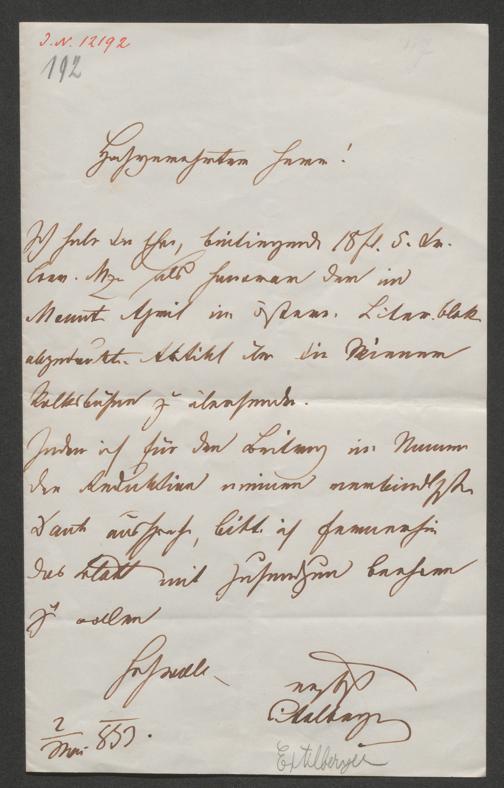 J.N. 12192
192
Hochgeehrtester Herr!
Ich habe die Ehre, beiliegend 18 fl. 5. kr.
Conv. Mze als Honorar der im
Monat April im österr. Literaturblatt
abgedruckten Artikel über die Wiener
Volksbühne zu übersenden.
Indem ich für den Beitrag im Namen
der Redaktion meinen verbindlichsten
Dank ausspreche, bitte ich fernerhin
das Blatt mit beehren
zu wollen
Eitelberger
2 Mai 853.
Eitelberger